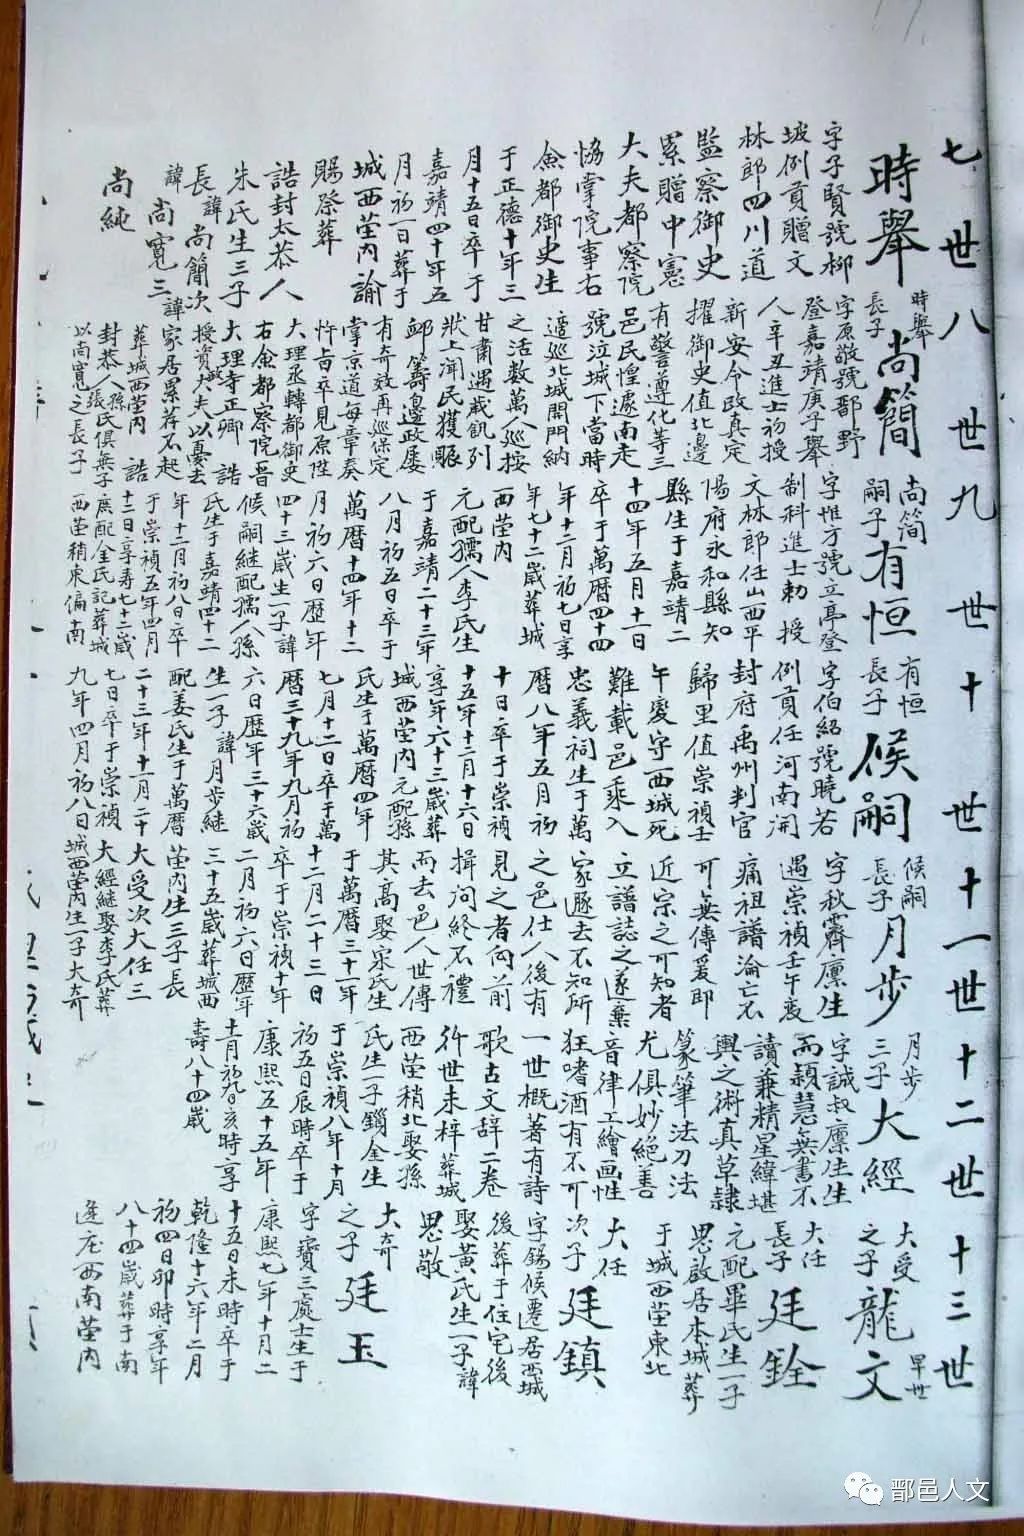 七世八世九世十世十一世十二世十三世
時舉
字子賢號柳
坡例貢贈文
林郎四川道
監察御史
累贈中憲
大夫都察院
協掌院事右
僉都御史生
于正德十年三
月十五日卒于
嘉靖四十年五
月初一日葬于
城西塋內諭
賜祭葬
誥封太恭人
朱氏生三子
長諱尚簡次
諱尚寬三諱
尚純
時舉
長子尚簡
字原敬號鄯野
登嘉靖庚子舉
人辛丑進士初授
新安令改真定
擢御史值北邊
有警遵化等三
邑民惶遽南走
號泣城下當時
適巡北城開門納
之活数萬人巡按
甘肅遇歲飢列
狀上聞民獲賑
䘏籌邊政屡
有奇效再巡保定
掌京道每章奏
忤旨卒見原陞
大理丞轉都御史
右僉都察院晉
大理寺正卿 誥
授資政大夫以憂去
家居累荐不起
葬城西塋內 誥
封恭人孫張氏俱無子
以尚寬之長子
尚简
嗣子有恒
字惟方號立亭登
制科進士勅授
文林郎任山西平
陽府永和縣知
縣生于嘉靖二
十四年五月十一日
卒于萬曆四十四
年十二月初七日享
年七十二歲葬城
西塋內
元配孺人李氏生
于嘉靖二十三年
八月初五日卒于
萬曆十四年十二
月初六日歷年
四十三歲生一子諱
候嗣継配孺人孫
氏生于嘉靖四十二
年十二月初八日卒
于崇禎五年四月
十三日享寿七十二歲
庶配全氏記葬城
西塋稍東偏南
有恒
長子候嗣
字伯紹號曉若
例貢任河南開
封府禹州判官
歸里值崇禎壬
午変守西城死
難載邑乘入
忠義祠生于萬
曆八年五月初
十日卒于崇禎
十五年十二月十六日
享年六十三歲葬
城西塋內元配孫
氏生于萬曆四年
七月十二日卒于萬
曆三十九年九月初
六日歷年三十六歲
生一子諱月步継
配姜氏生于萬曆
二十三年十一月二十
七日卒于崇禎
九年四月初八日
候嗣
長子月步
字秋霽廩生
遇崇禎壬午変
痛祖譜淪亡不
可無傳爰即
近宗之可知者
立譜誌之遂棄
家豚去不知所
之邑仕人後有
見之者向前
揖问終不禮
而去邑人世傳
其高娶宋氏生
于萬曆三十一年
十二月二十三日
卒于崇禎十年
二月初六日歷年
三十五歲葬城西
塋內生三子長
大受次大任三
大經継娶李氏葬
城西塋內生一子大奇
月步
三子大經
字誠叔廪生生
而颖慧無書不
讀兼精星緯堪
輿之術真草隸
篆筆法刀法
尤俱妙絕善
音律工繪画性
狂嗜酒有不可
一世概著有詩
歌古文辞二卷
行世未梓葬城
西塋稍北娶孫
氏生一子鎦全生
于崇禎八年十月
初五日辰時卒于
康熙五十五年
十一月初九日亥時享
壽八十四歲
大受
之子龍文
早世
大任
長子廷銓
元配畢氏生一子
思啟居本城葬
于城西塋東北
大任
次子廷鎮
字錫候遷居西城
後葬于住宅後
娶黃氏生一子諱
思敬
大奇
之子廷玉
字寶三處士生于
康熙七年十月二
十五日未時卒于
乾隆十六年二月
初四日卯時享年
八十四歲葬于南
逄庄西南塋內
鄑邑人文